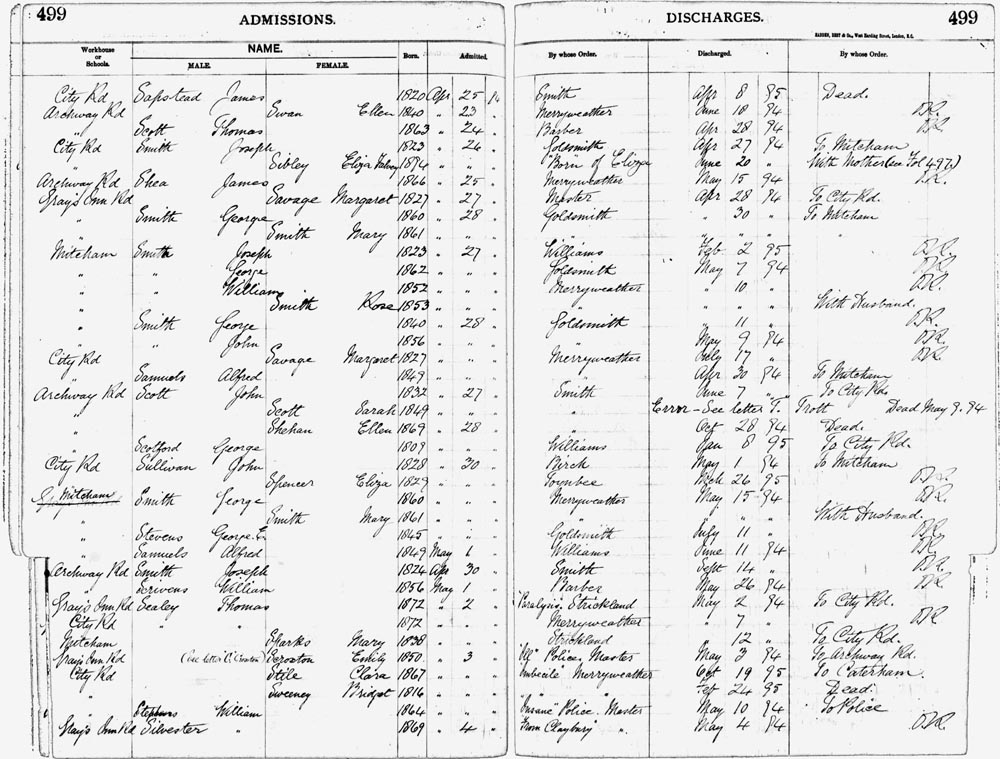 499 ADMISSIONS. DISCHARGES. 499
HARRIS, BEST & Co., West Harding Street, London, E.C.
Workhouse or Schools. NAME. MALE. FEMALE. Born. Admitted. By whose Order. Discharged. By whose Order.
City Rd Sapstead James 1820 Apr 25 94 Smith Apr 8 95 Dead.
Archway Rd Swan Ellen 1840 " 23 " Merryweather June 18 94 O.R.
" Scott Thomas 1863 " 24 " Barber Apr 28 94 O.R.
City Rd Smith Joseph 1823 " 26 " Goldsmith Apr 27 94 To Mitcham
" Sibley Eliza 1894 " " " "Born of Eliza June 20 " With Mother (see Fol 497.)
Archway Rd Shea James 1866 " 25 " Merryweather May 15 94 O.R.
Gray's Inn Rd Savage Margaret 1827 " 27 " Master Apr 28 94 To City Rd.
" Smith George 1860 " 28 " Goldsmith " 30 " To Mitcham
" Smith Mary 1861 " " " " " " " "
Mitcham Smith Joseph 1823 " 27 " Williams Feb 2 95 O.R.
" " George 1862 " " " Goldsmith May 7 94 O.R.
" " William 1852 " " " Merryweather " 10 " O.R.
" Smith Rose 1853 " " " " " " " With Husband.
" Smith George 1840 " 28 " Goldsmith " 11 " O.R.
" " John 1856 " " " " May 9 94 O.R.
City Rd Savage Margaret 1827 " " " Merryweather July 17 " O.R.
" Samuels Alfred 1849 " " " " Apr 30 94 To Mitcham
Archway Rd Scott John 1832 " 27 " Smith June 7 " To City Rd.
" Scott Sarah 1849 " " " " Error - See letter T. Trott Dead May 9. 94
" Shehan Ellen 1869 " 28 " Oct 28 94 Dead.
" Scotford George 1809 " " " Williams Jan 8 95 To City Rd.
City Rd Sullivan John 1828 " 30 " Birch May 1 94 To Mitcham
" Spencer Eliza 1829 " " " Toynbee Mch 26 95 O.R.
Mitcham Smith George 1860 " " " Merryweather May 15 94 O.R.
" Smith Mary 1861 " " " " " " " With Husband.
" Stevens George. E. 1845 " " " Goldsmith July 11 " O.R.
" Samuels Alfred 1849 May 1 " Williams June 11 94 O.R.
Archway Rd Smith Joseph 1824 Apr 30 " Smith Sept 14 " O.R.
" Scrivens William 1856 May 1 " Barber May 26 94 O.R.
Gray's Inn Rd Sealey Thomas 1872 " 2 " "Paralysis, Strickland May 2 94 To City Rd.
City Rd " " 1872 " " " Merryweather " 7 " O.R.
Mitcham Sparks Mary 1838 " " " Strickland " 12 " To City Rd.
Gray's Inn Rd (See letter C. Croxton) Emily 1850 " 3 " Police, Master May 3 94 To Archway Rd.
City Rd Stile Clara 1867 " " " Imbecile Merryweather Oct 19 95 To Caterham.
" Sweeney Bridget 1816 " " " " " Feb 24 95 Dead.
" Stephens William 1864 " " " "Insane" Police. Master May 10 94 To Police
Gray's Inn Rd Silvester " 1869 " 4 " From Claybury " May 4 94 O.R.